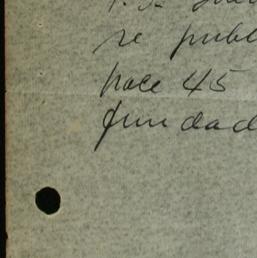 se publ
hace 45
fundad